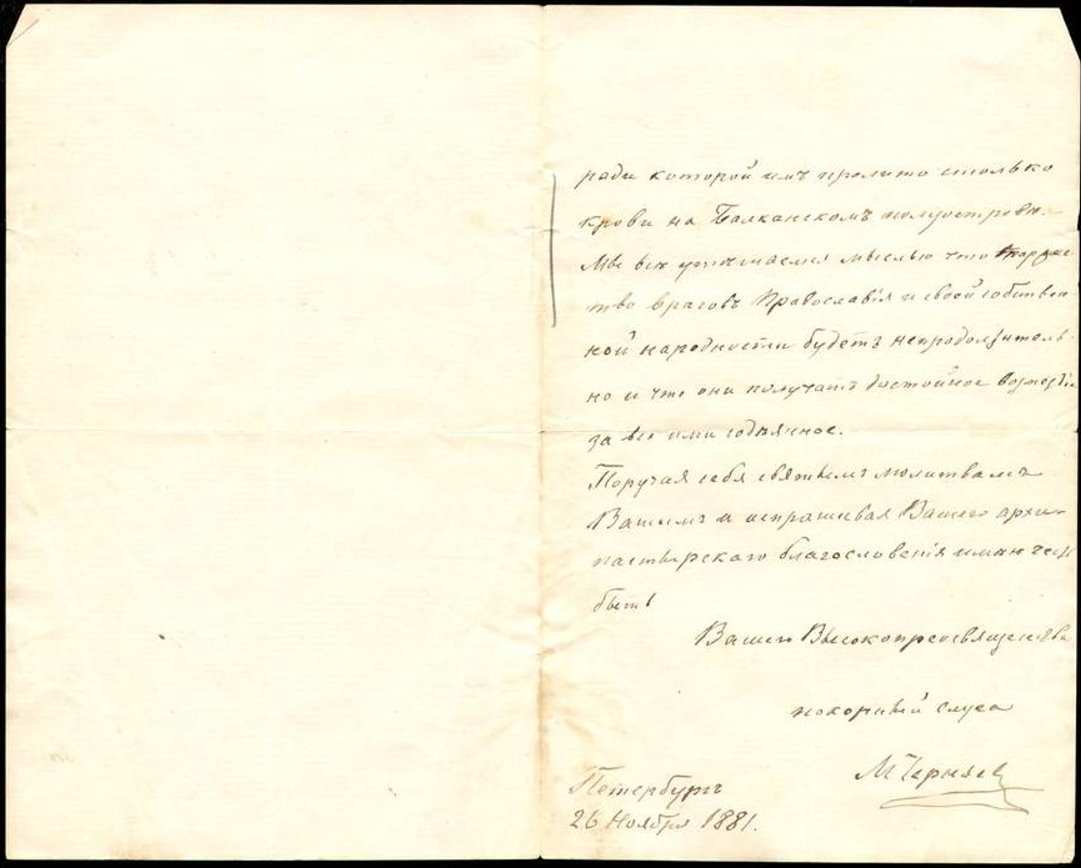 ради которой имъ пролито столько
крови на Балканскомъ полуостровѣ.
Мы всѣ утѣшаемся мыслью что торже
тво враговъ Православія и своей собствен
ной народности будетъ непродолжитель
но и что они получатъ достойное возмездіе
за все ими содѣянное.
Поручая себя святымъ молитвамъ
Вашимъ и испрашивая Вашего архи
пастырскаго благословенія имѣю честь
быть
Вашего Высокопреосвященства
покорный слуга
МЧерняев
Петербургъ
26 Ноября 1881.